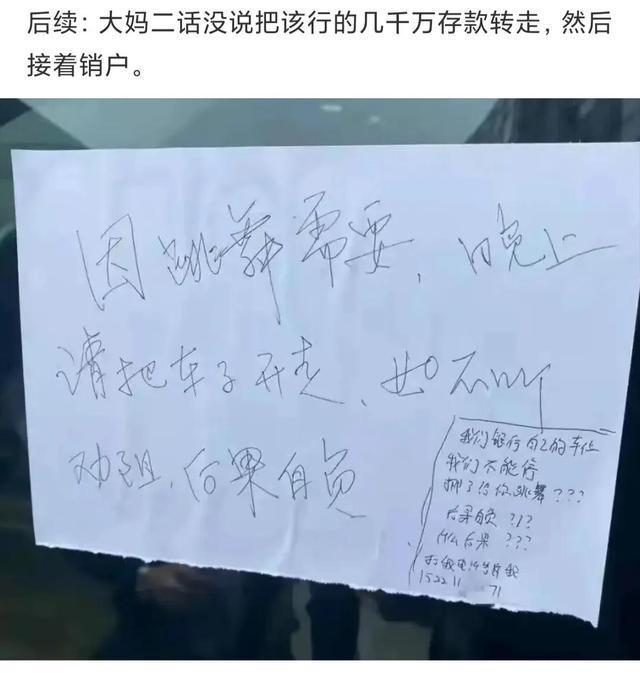 后续：大妈二话没说把该行的几千万存款转走，然后
接着销户。
因跳舞需要，晚上
请把车子开走、如不听
劝阻，后果自负
我们银行自己的车位
我们不能停
挪了给你跳舞？？？
后果自负？！？
什么后果？？？
打我电话告诉我
1522 11 71